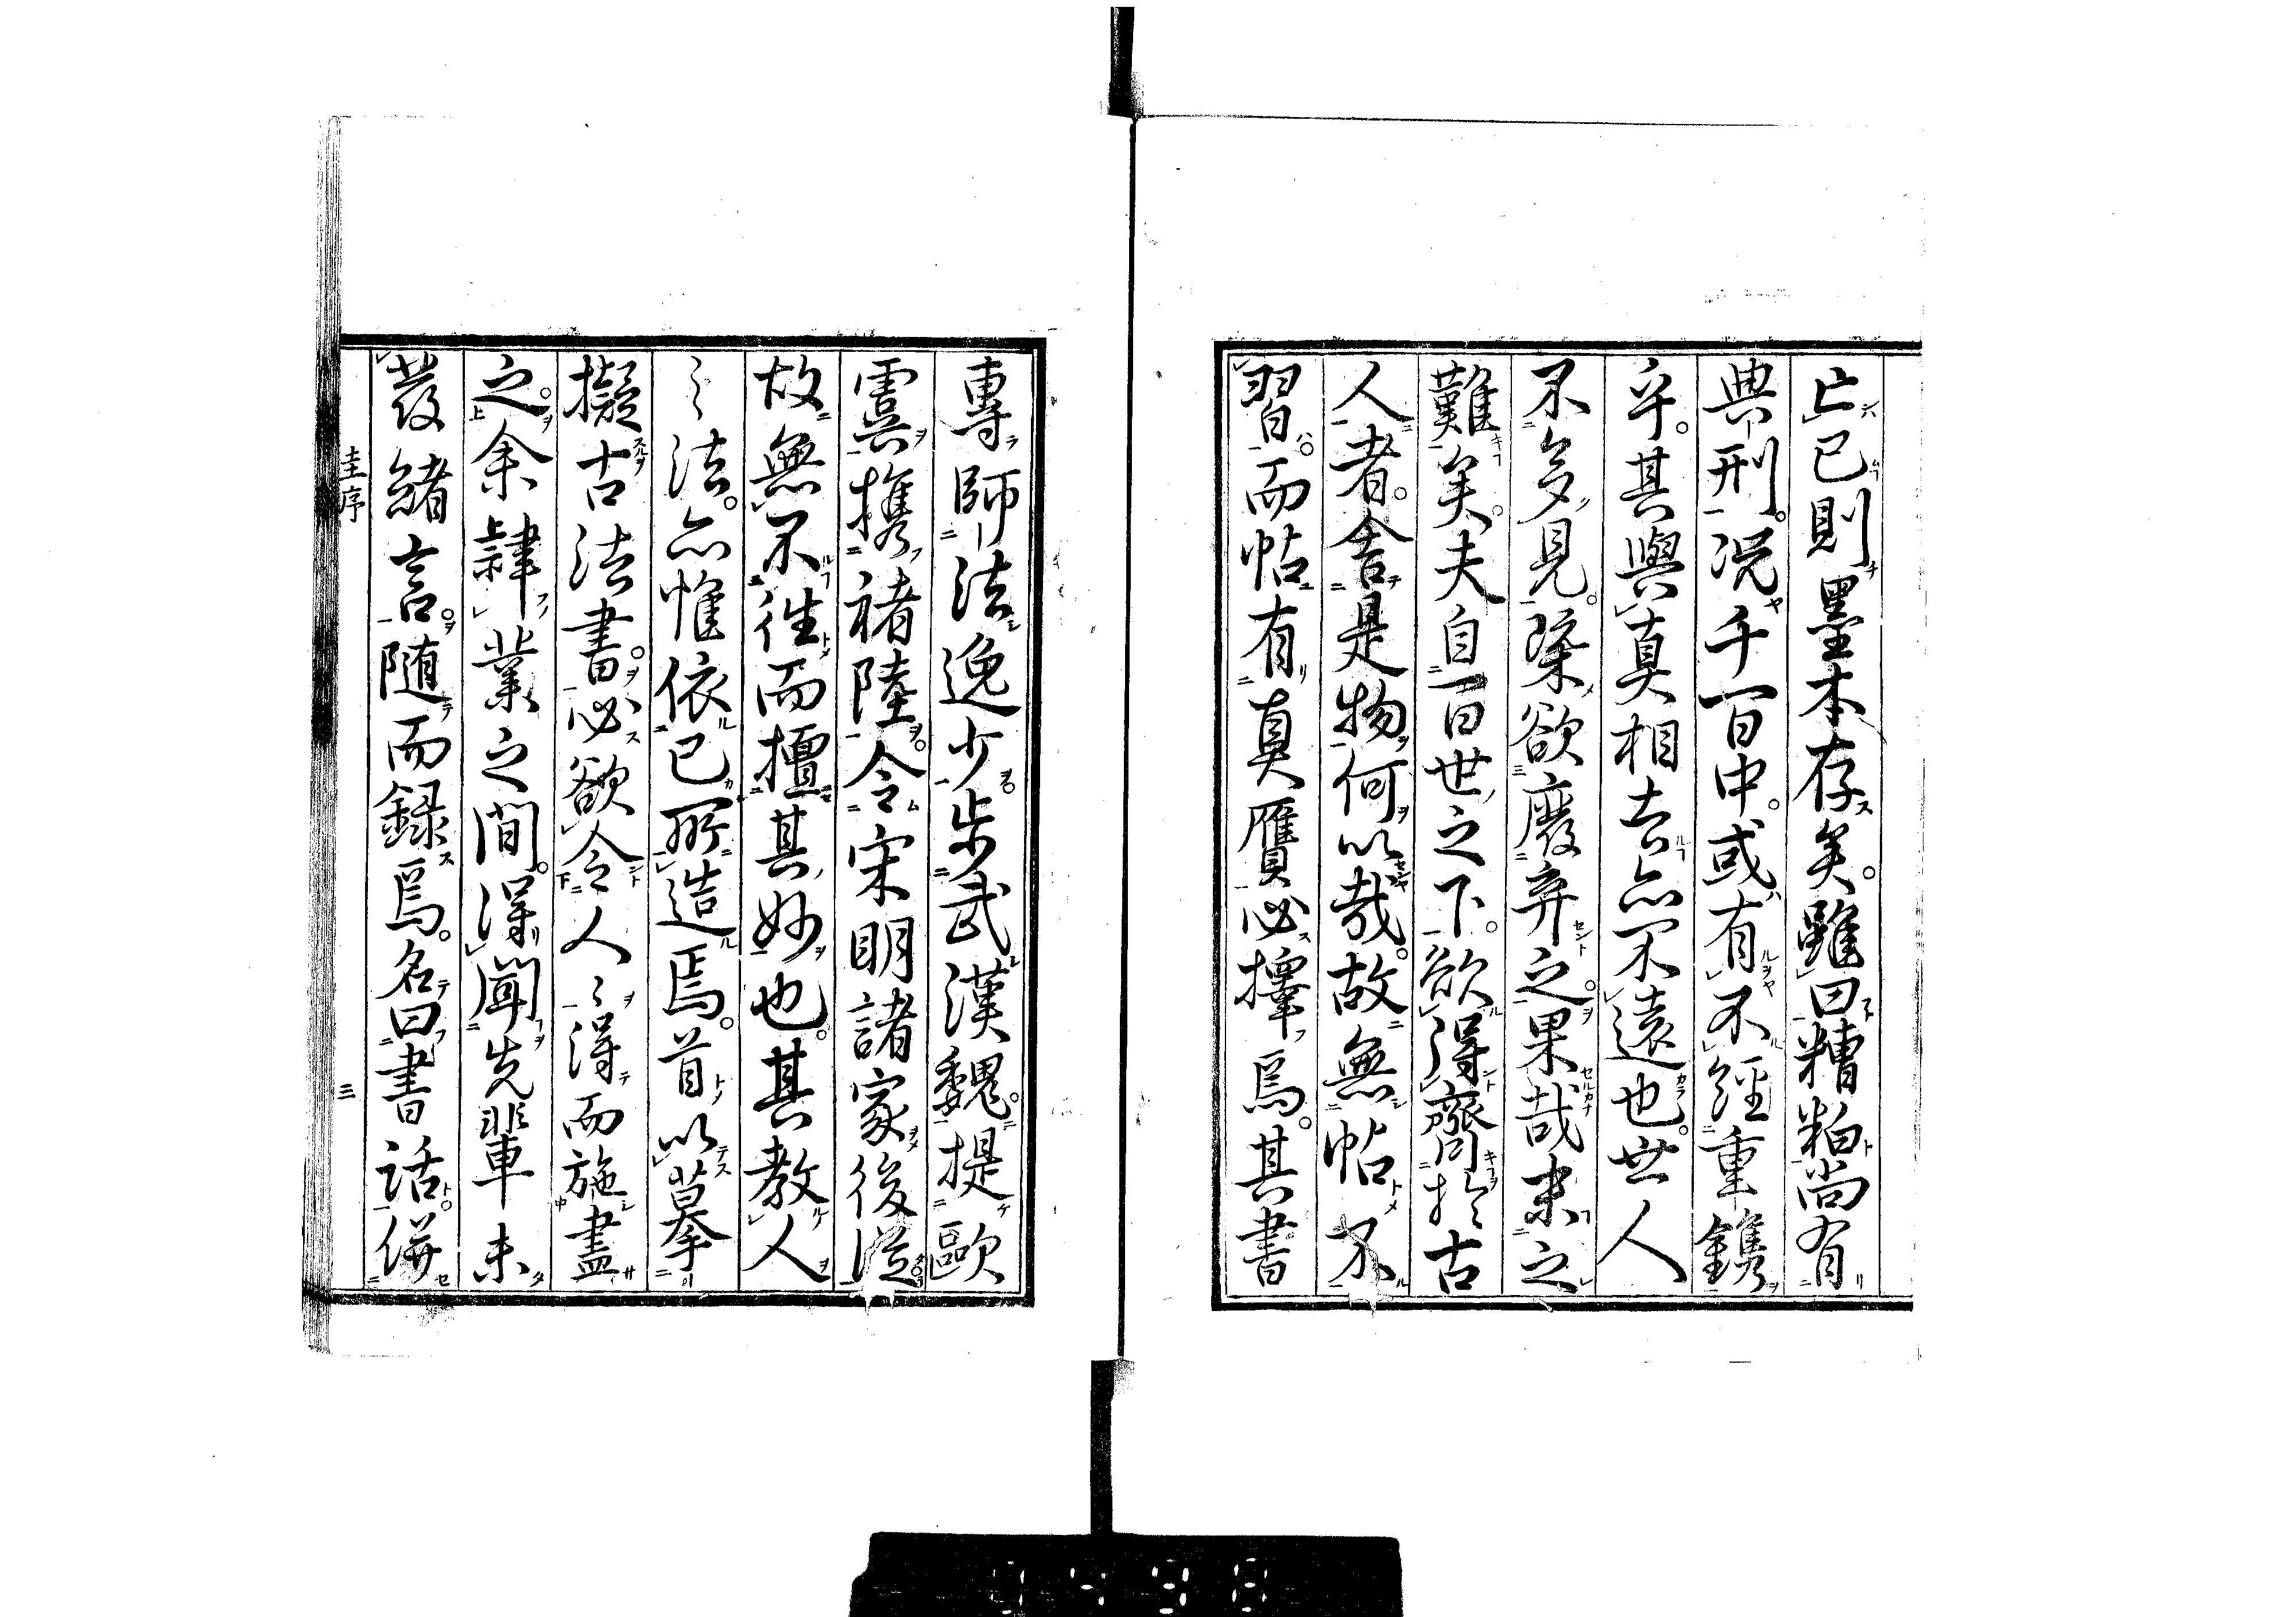 亡已則墨本存矣雖曰糟粕尚有
典刑況千百中或有不經重鐫
乎其與真相去亦不遠也世人
不多見槩欲廢弃之果哉末之
難矣夫自百世之下欲得齊於古
人者舍是物何以哉故無帖不
習而帖有真贋必擇焉其書
專師法逸少步武漢魏提歐
虞攜褚陸令宋明諸家後従
故無不往而擅其妙也其教人
之法亦惟依已所造焉首以摹
擬古法書必欲令人〻得而施盡
之余肄業之間得聞先輩未
發緒言随而録焉名曰書話併
圭序
三